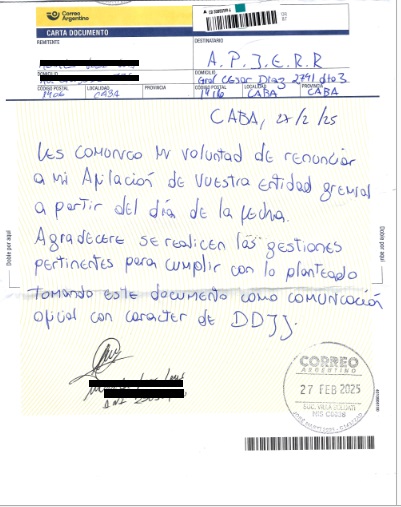 Correo
Argentino
CARTA DOCUMENTO
REMITENTE
DESTINATARIO
A.P.J.E.R.R
DOMICILIO
DOMICILIO
Gral César Diaz 2741 dto 3
CÓDIGO POSTAL LOCALIDAD PROVINCIA
CÓDIGO POSTAL LOCALIDAD PROVINCIA
CABA
1416 CABA CABA
CABA, 27/2/25
Les comunico mi voluntad de renunciar
a mi Afiliación de vuestra entidad gremial
a partir del día de la fecha.
Agradeceré se realicen las gestiones
pertinentes para cumplir con lo planteado
tomando este documento como comunicación
oficial con caracter de DDJJ.
Doble por aquí
Doble por aquí
CORREO
ARGENTINO
27 FEB 2025